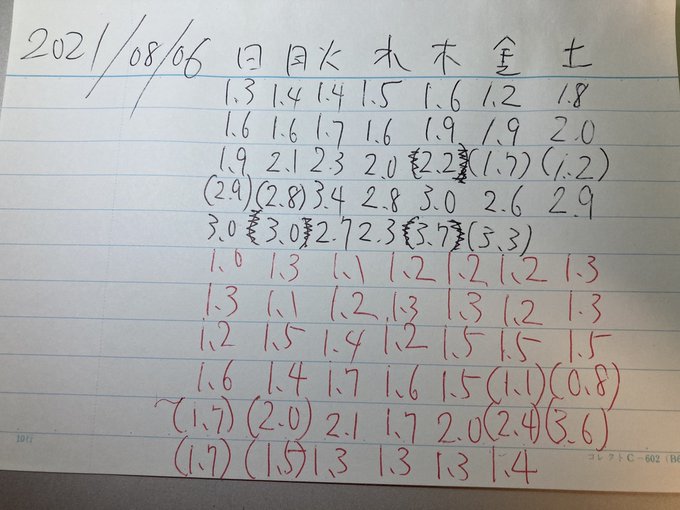 2021/08/06 日 月 火 水 木 金 土
1.3 1.4 1.4 1.5 1.6 1.2 1.8
1.6 1.6 1.7 1.6 1.9 1.9 2.0
1.9 2.1 2.3 2.0 {2.2} (1.7) (1.2)
(2.9) (2.8) 3.4 2.8 3.0 2.6 2.9
3.0 {3.0} 2.7 2.3 {3.7} (3.3)
1.0 1.3 1.1 1.2 1.2 1.2 1.3
1.3 1.1 1.2 1.3 1.3 1.2 1.3
1.2 1.5 1.4 1.2 1.5 1.5 1.5
1.6 1.4 1.7 1.6 1.5 (1.1) (0.8)
(1.7) (2.0) 2.1 1.7 2.0 (2.4) (3.6)
(1.7) (1.5) 1.3 1.3 1.3 1.4
コレクト C-602 (B6